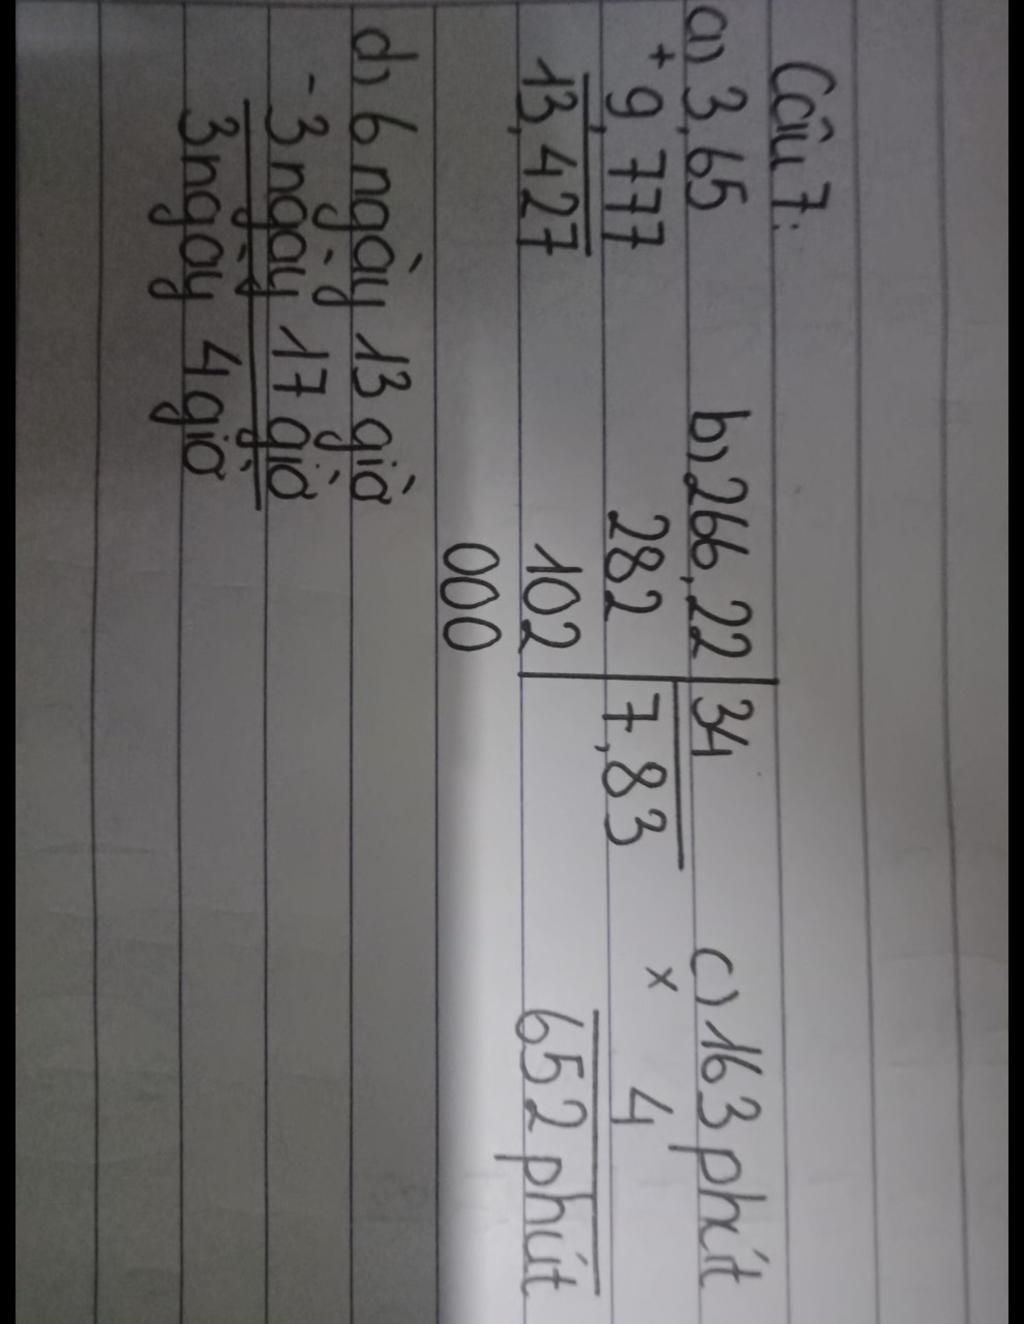 Câu 7:
a) 3,65 b) 266,22 34 c) 163 phút
+ 9,777 282 7,83 x 4
13,427 102 652 phút
000
d) 6 ngày 13 giờ
- 3 ngày 17 giờ
3 ngày 4 giờ